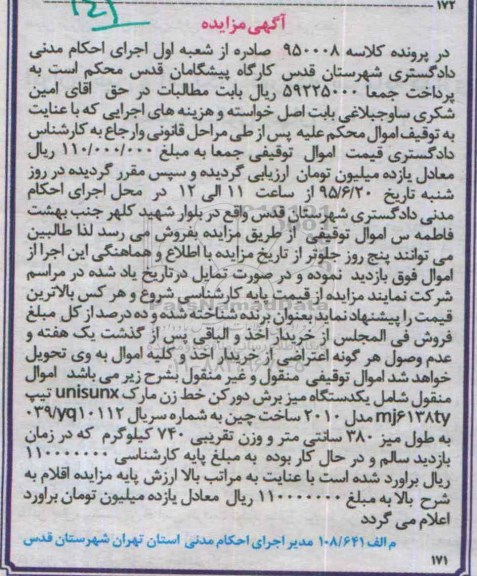 ۱۷۲
آگهی مزایده
در پرونده کلاسه ۹۵۰۰۰۸ صادره از شعبه اول اجرای احکام مدنی
دادگستری شهرستان قدس کارگاه پیشگامان قدس محکم است به
پرداخت جمعا ۵۹۲۲۵۰۰۰ ریال بابت مطالبات در حق اقای امین
شکری ساوجبلاغی بابت اصل خواسته و هزینه های اجرایی که با عنایت
به توقیف اموال محکم علیه پس از طی مراحل قانونی وارجاع به کارشناس
دادگستری قیمت اموال توقیفی جمعا به مبلغ ۱۱۰/۰۰۰/۰۰۰ ریال
معادل یازده میلیون تومان ارزیابی گردیده و سپس مقرر گردیده در روز
شنبه تاریخ ۹۵/۶/۲۰ از ساعت ۱۱ الی ۱۲ در محل اجرای احکام
مدنی دادگستری شهرستان قدس واقع در بلوار شهید کلهر جنب بهشت
فاطمه س اموال توقیفی از طریق مزایده بفروش می رسد لذا طالبین
می توانند پنج روز جلوتر از تاریخ مزایده با اطلاع و هماهنگی این اجرا از
اموال فوق بازدید نموده و در صورت تمایل درتاریخ یاد شده در مراسم
شرکت نمایند مزایده از قیمت پایه کارشناسی شروع و هر کس بالاترین
قیمت را پیشنهاد نماید بعنوان برنده شناخته شده و ده درصد از کل مبلغ
فروش فی المجلس از خریدار اخذ و الباقی پس از گذشت یک هفته و
عدم وصول هر گونه اعتراضی از خریدار اخذ و کلیه اموال به وی تحویل
خواهد شد اموال توقیفی منقول و غیر منقول بشرح زیر می باشد اموال
منقول شامل یکدستگاه میز برش دور کن خط زن مارک unisunx تیپ
mj۶۱۳۸ty مدل ۲۰۱۰ ساخت چین به شماره سریال ۰۳۹/yq۱۰۱۱۲
به طول میز ۳۸۰ سانتی متر و وزن تقریبی ۷۴۰ کیلوگرم که در زمان
بازدید سالم و در حال کار بوده به مبلغ پایه کارشناسی ۱۱۰۰۰۰۰۰۰
ریال براورد شده است با عنایت به مراتب بالا ارزش پایه مزایده اقلام به
شرح بالا به مبلغ ۱۱۰۰۰۰۰۰۰ ریال معادل یازده میلیون تومان براورد
اعلام می گردد
م الف ۱۰۸/۶۴۱ مدیر اجرای احکام مدنی استان تهران شهرستان قدس
۱۷۱